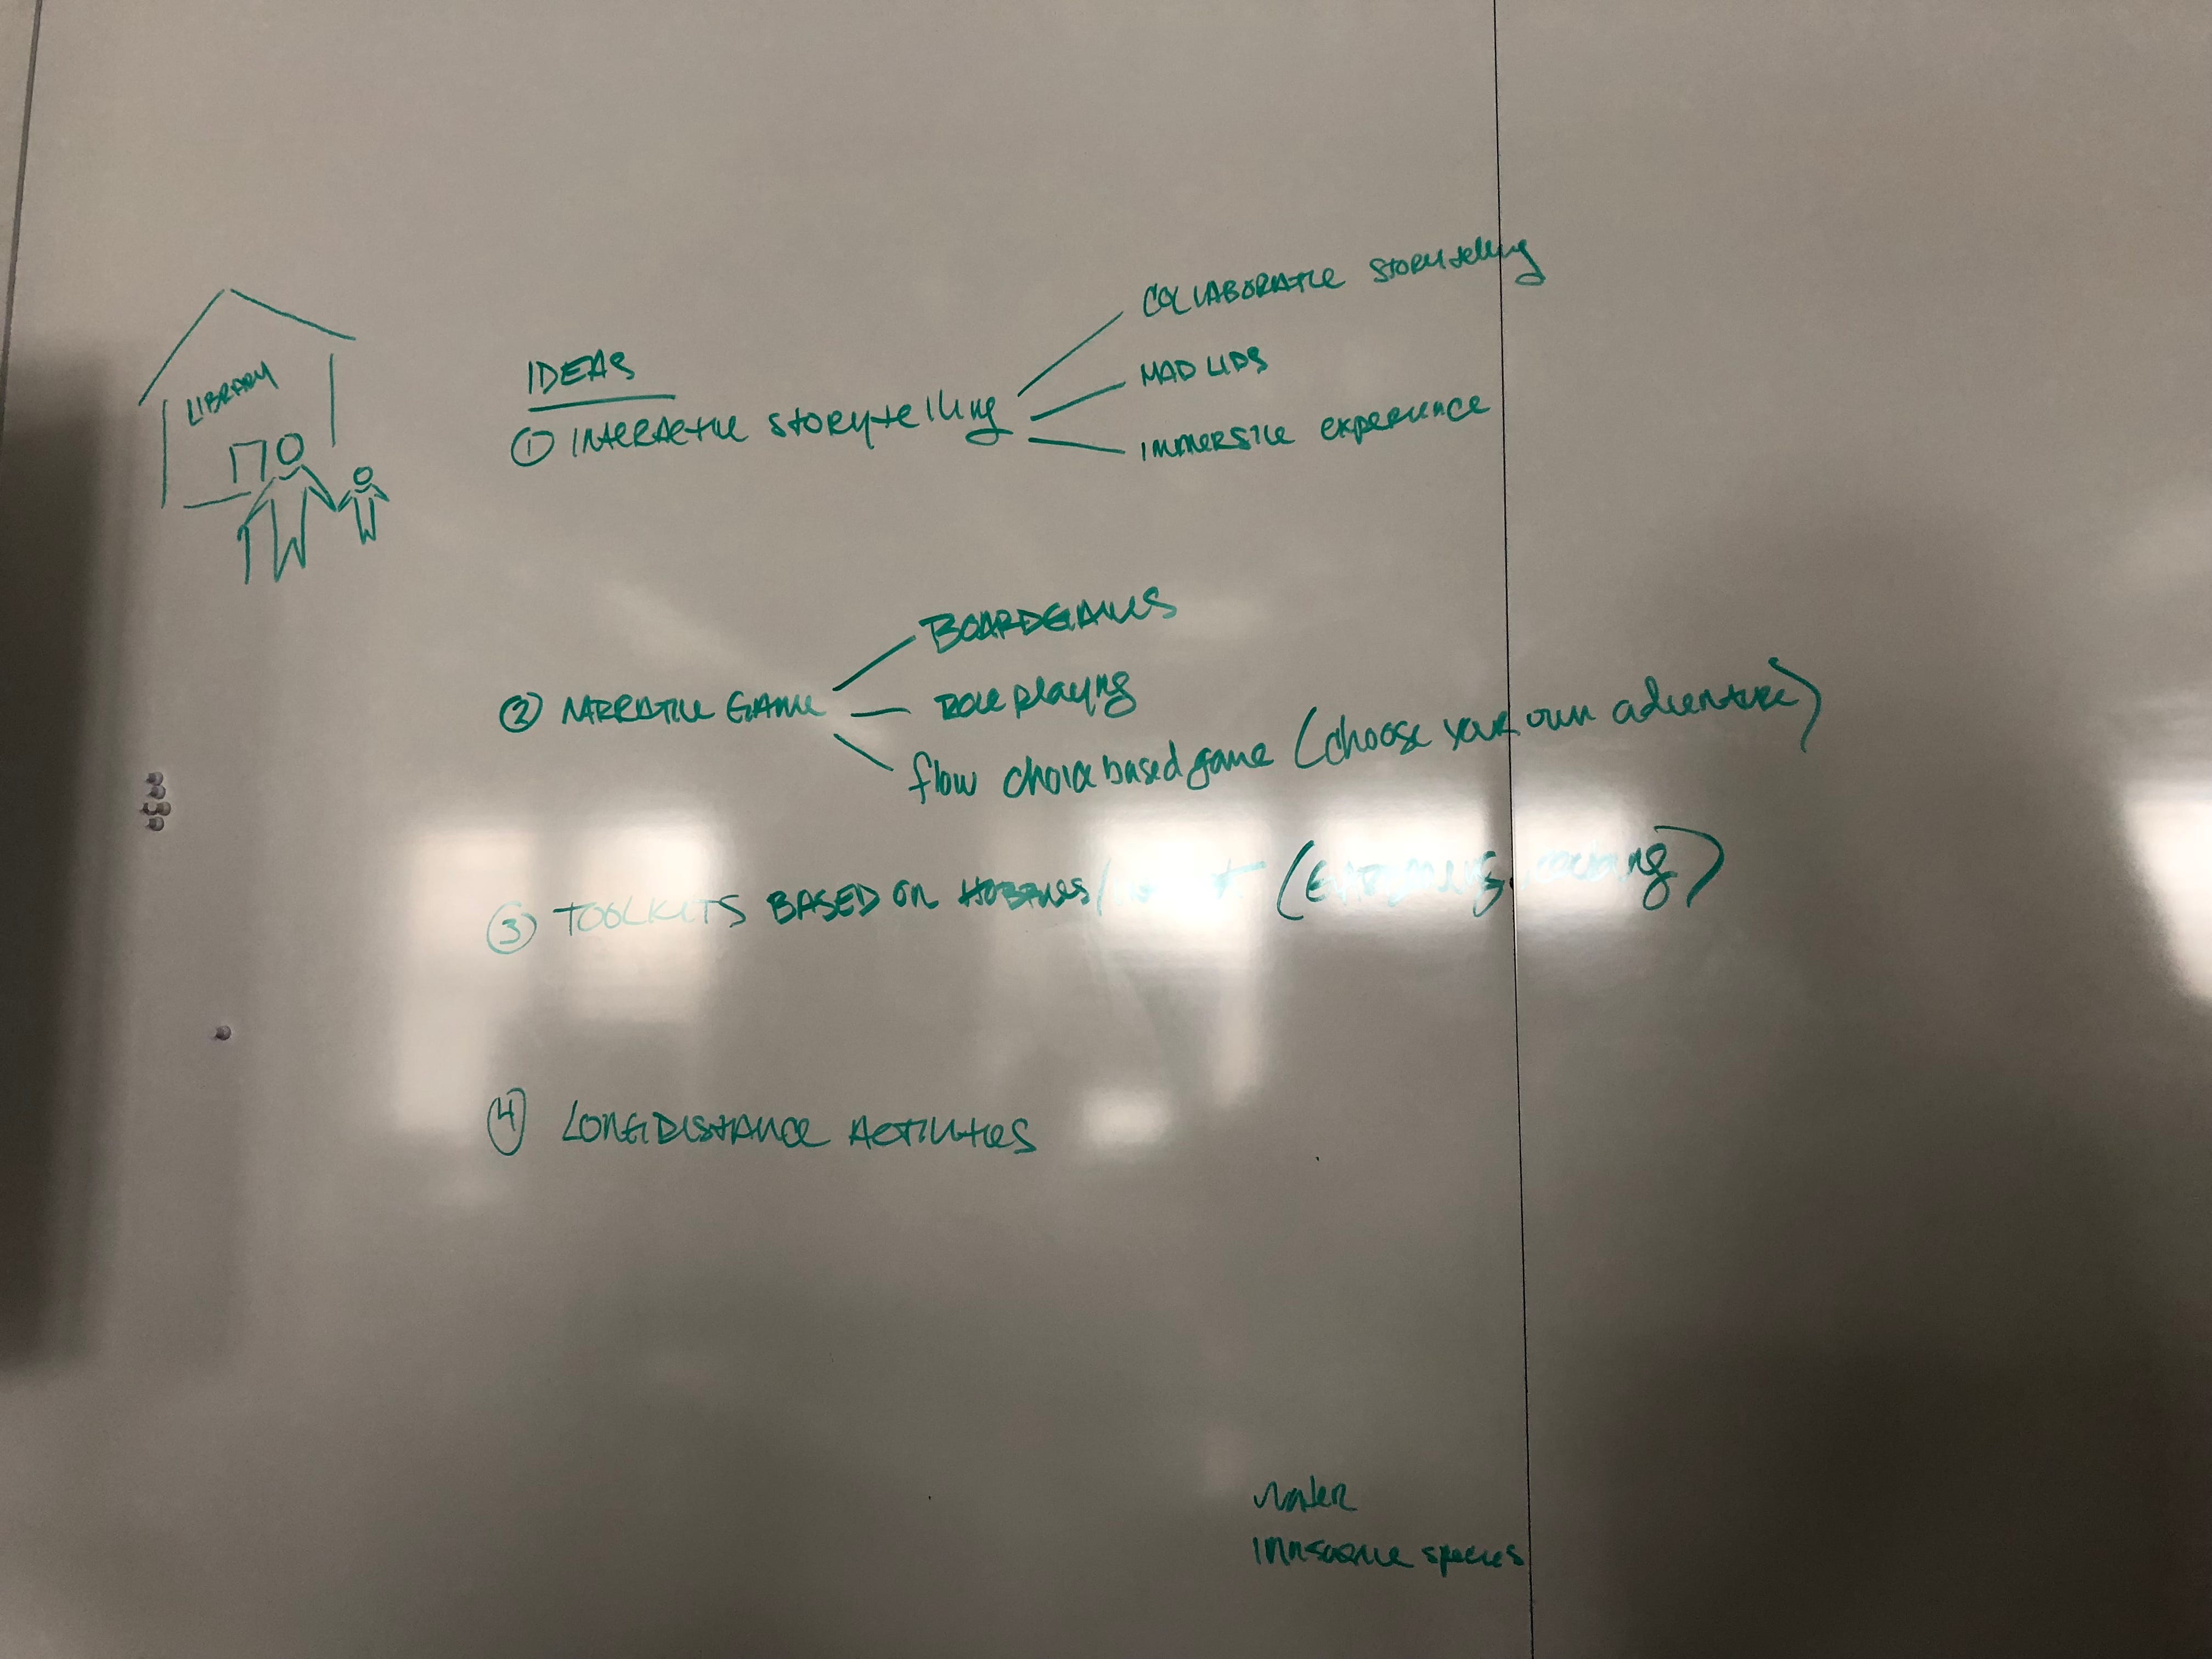 LIBRARY
IDEAS
① INTERACTIVE STORYtelling
COLLABORATIVE STORYtelling
MAD LIBS
IMMERSIVE experience
② NARRATIVE GAME
BOARDGAMES
ROLE playing
flow choice based game (choose your own adventure)
③ TOOLKITS BASED ON HOBBIES/ (GARDENING, cooking)
④ LONG DISTANCE ACTIVITIES
water
invasive species